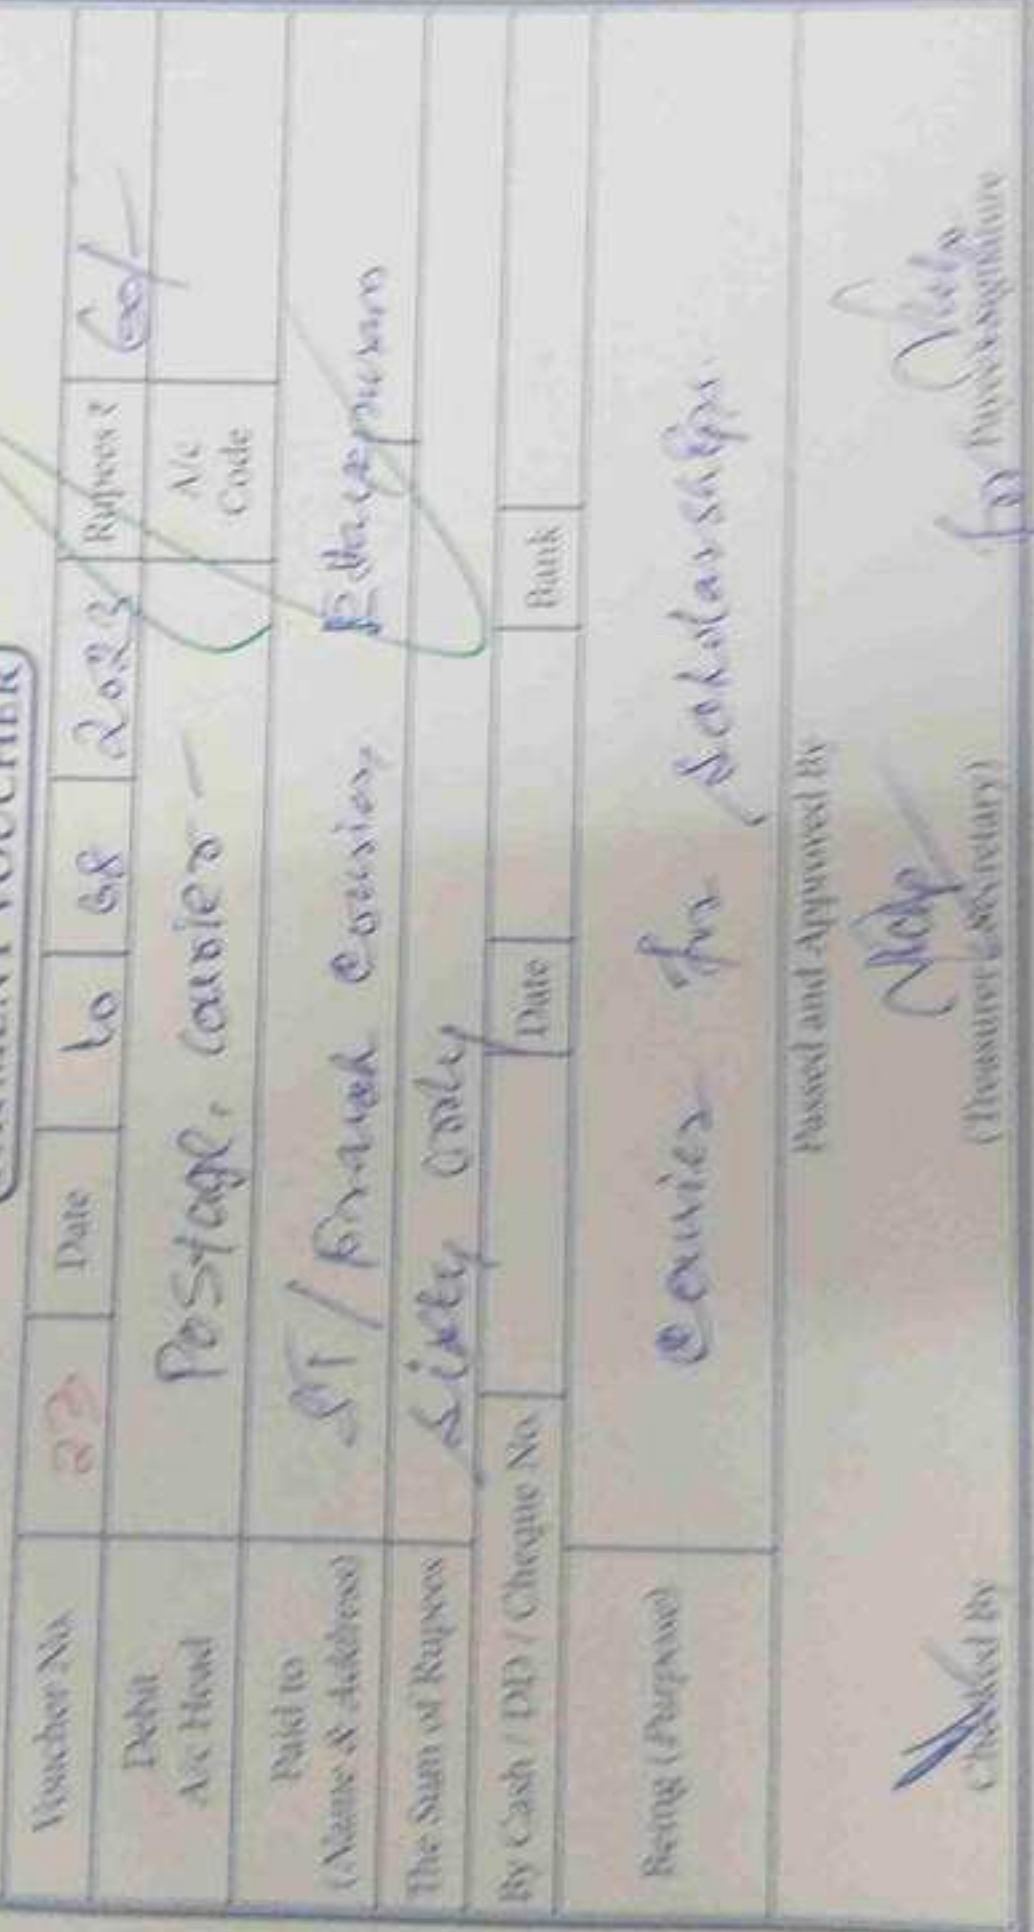 PAYMENT VOUCHER
Voucher No. 23 Date 10 08 2023 Rupees ₹ 60/-
Debit A/c Head Postage, Courier - A/c Code
Paid to (Name & Address) ST/ Courier,
The Sum of Rupees Sixty only
By Cash / DD / Cheque No. Date Bank
Being (Purpose) Courier for Scholarship.
Passed and Approved By
Checked By (Treasurer & Secretary) Payee's Signature